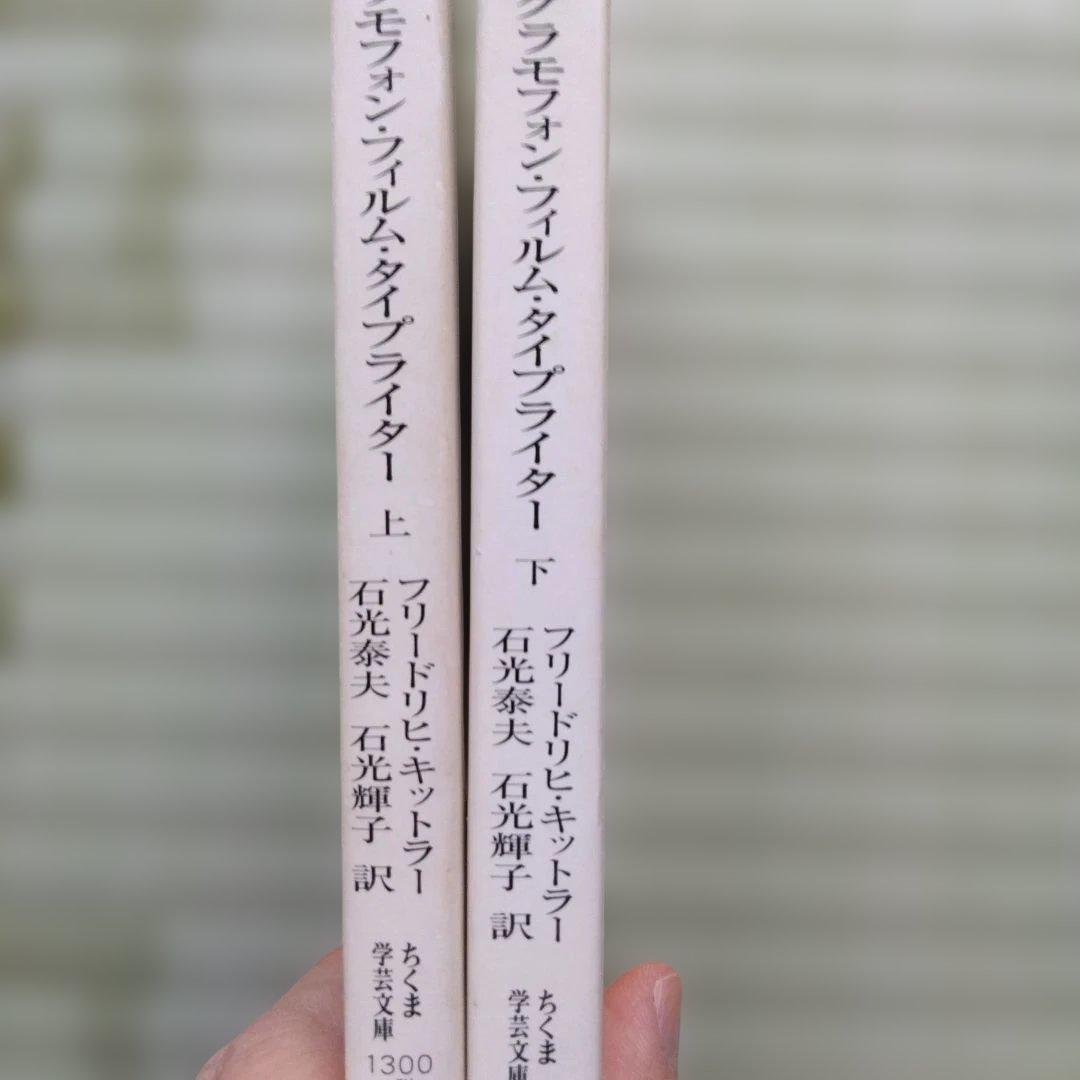 ラモフォン・フィルム・タイプライター 上
フリードリヒ・キットラー
石光泰夫 石光輝子 訳
ちくま
学芸文庫
1300
グラモフォン・フィルム・タイプライター 下
フリードリヒ・キットラー
石光泰夫 石光輝子 訳
ちくま
学芸文庫